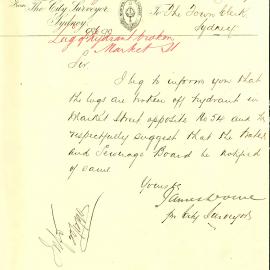 From The City Surveyor
Sydney
To The Town Clerk
Sydney
Lug of hydrant broken
Market St
Sir
I beg to inform you that
the lugs are broken off hydrant in
Market Street opposite No 34 and
respectfully suggest that the Water
and Sewerage Board be notified
of same
Yours &c
for City Surveyor